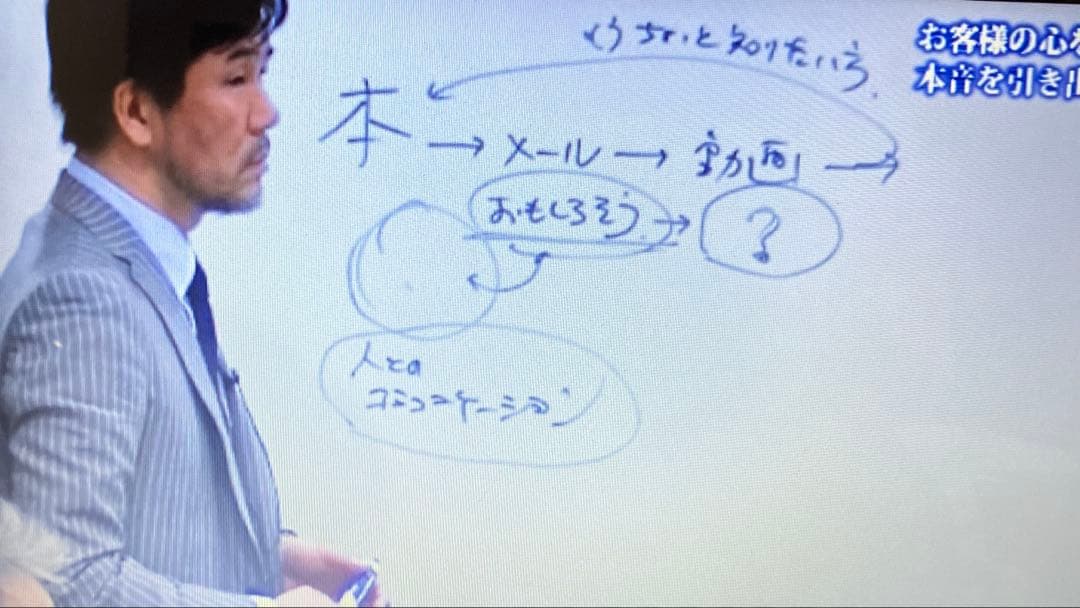 もうちょっと知りたいな。
お客様の心を
本音を引き出
本 → メール → 動画 →
おもしろそう。 → ?
人との
コミュニケーション